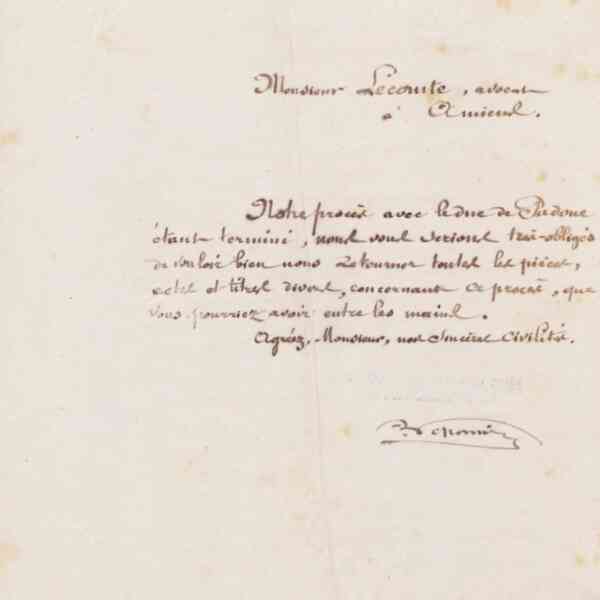 Monsieur Lecomte, avocat
à Amiens.
Notre procès avec le duc de Padoue
étant terminé, nous vous serions très-obligés
de vouloir bien nous retourner toutes les pièces,
actes et titres divers, concernant ce procès, que
vous pourriez avoir entre les mains.
Agréez, Monsieur, nos sincères civilités.